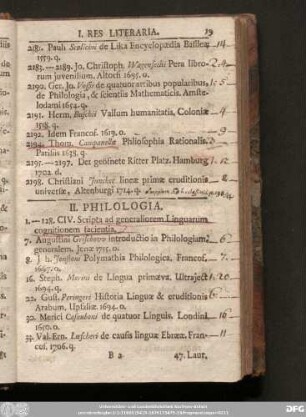 I. RES LITERARIA. 19
2181. Pauli Scalichii de Lika Encyclopædia Basileæ 14
1559. q.
2183. — 2189. Jo. Christoph. Wagenseilii Pera libro- 2. 4
rum juvenilium. Altorfi 1695. o.
2190. Ger. Jo. Vossii de quatuor artibus popularibus, 1. 5
de Philologia, & scientiis Mathematicis. Amste-
lodami 1654. q.
2191. Herm. Buschii Vallum humanitatis. Coloniæ 4
1518. q.
2192. Idem Francof. 1619. o. 9
2194. Thom. Campanella Philosophia Rationalis. 3
Parisiis 1638. q.
2195. — 2197. Der geöfnete Ritter Platz. Hamburg 1. 12
1702. d.
2198. Christiani Juncker lineæ primæ eruditionis 8
universæ, Altenburgi 1714.
II. PHILOLOGIA.
1. — 128. CIV. Scripta ad generaliorem Linguarum
cognitionem facientia.
7. Augustini Grischovv introductio in Philologiam 6
generalem. Jenæ 1715. o.
8. J. h. Jonstoni Polymathia Philologica, Francof. 7
1667. o.
16. Steph. Morini de Lingua primæva. Ultraject 1. 20
1694. q.
22. Gust. Peringeri Historia Linguæ & eruditionis 6
Arabum, Upsaliæ 1694. o.
30. Merici Casauboni de quatuor Linguis. Londini 16
1650. o.
33. Val. Ern. Lœscheri de causis linguæ Ebrææ. Fran- 11
cof. 1706. q.
B 2 47. Laur.